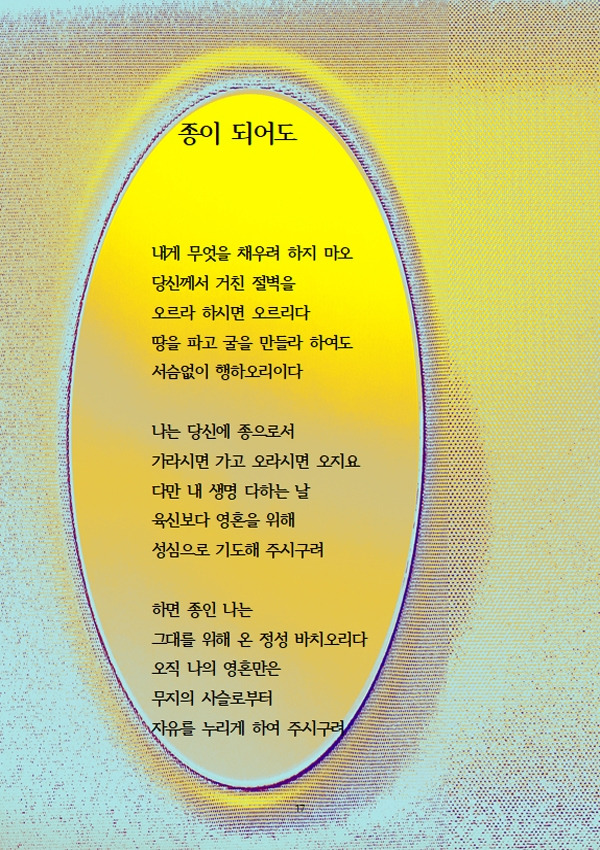 종이 되어도
내게 무엇을 채우려 하지 마오
당신께서 거친 절벽을
오르라 하시면 오르리다
땅을 파고 굴을 만들라 하여도
서슴없이 행하오리이다
나는 당신에 종으로서
가라시면 가고 오라시면 오지요
다만 내 생명 다하는 날
육신보다 영혼을 위해
성심으로 기도해 주시구려
하면 종인 나는
그대를 위해 온 정성 바치오리다
오직 나의 영혼만은
무지의 사슬로부터
자유를 누리게 하여 주시구려
17